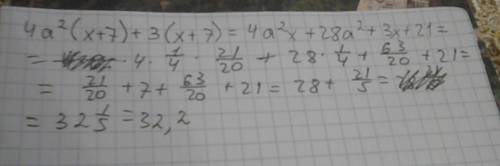 4a²(x+7)+3(x+7)=4a²x+28a²+3x+21=
= 4·1/4·21/20+28·1/4+63/20+21=
= 21/20+7+63/20+21=28+21/5=
=32 1/5=32,2